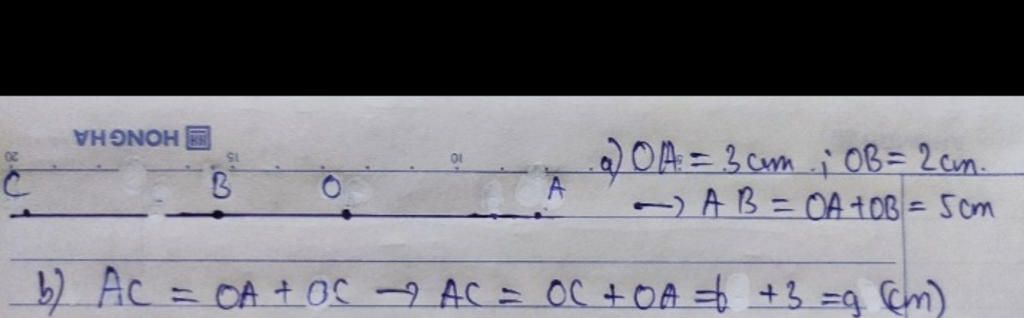 HONG HA
20 15 10
C B O A
a) OA = 3 cm ; OB = 2 cm.
→ AB = OA + OB = 5 cm
b) AC = OA + OC → AC = OC + OA = 6 + 3 = 9 (cm)